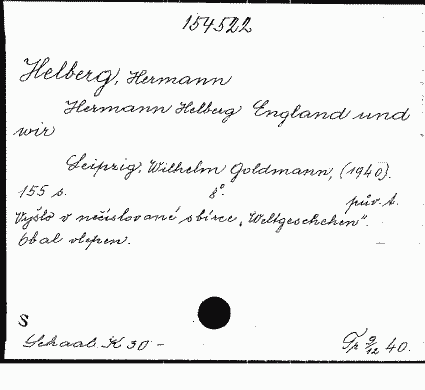 154522
Helberg, Hermann
Hermann Helberg England und
wir
Leipzig, Wilhelm Goldmann, (1940).
155 s. 8°. pův. t.
Vyšlo v nečíslované sbírce „Weltgeschehen“.
Obal vlepen.
S
Schaab K 30 - Tp 9/12 40.